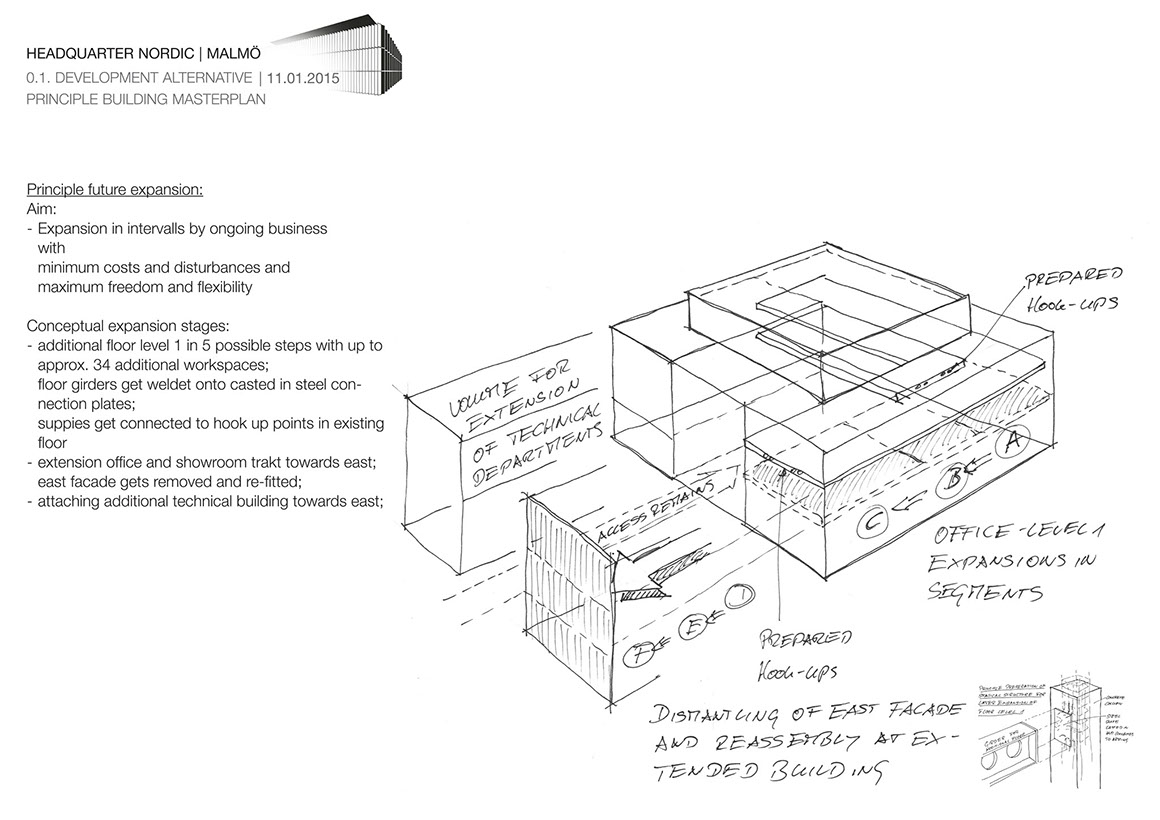 HEADQUARTER NORDIC | MALMÖ
0.1. DEVELOPMENT ALTERNATIVE | 11.01.2015
PRINCIPLE BUILDING MASTERPLAN
Principle future expansion:
Aim:
- Expansion in intervalls by ongoing business
with
minimum costs and disturbances and
maximum freedom and flexibility
Conceptual expansion stages:
- additional floor level 1 in 5 possible steps with up to
approx. 34 additional workspaces;
floor girders get weldet onto casted in steel con-
nection plates;
suppies get connected to hook up points in existing
floor
- extension office and showroom trakt towards east;
east facade gets removed and re-fitted;
- attaching additional technical building towards east;
PREPARED
HOOK-UPS
VOLUME FOR
EXTENSION
OF TECHNICAL
DEPARTMENTS
ACCESS REMAINS
A
B
C
OFFICE-LEVEL 1
EXPANSIONS IN
SEGMENTS
E
F
PREPARED
HOOK-UPS
DISMANTLING OF EAST FACADE
AND REASSEMBLY AT EX-
TENDED BUILDING
PRINCIPLE PREPARATION OF
STRUCTURE FOR
LATER EXTENSION OF
FLOOR LEVEL 1
GIRDER FOR
ADDITIONAL FLOOR
CONCRETE
COLUMN
STEEL